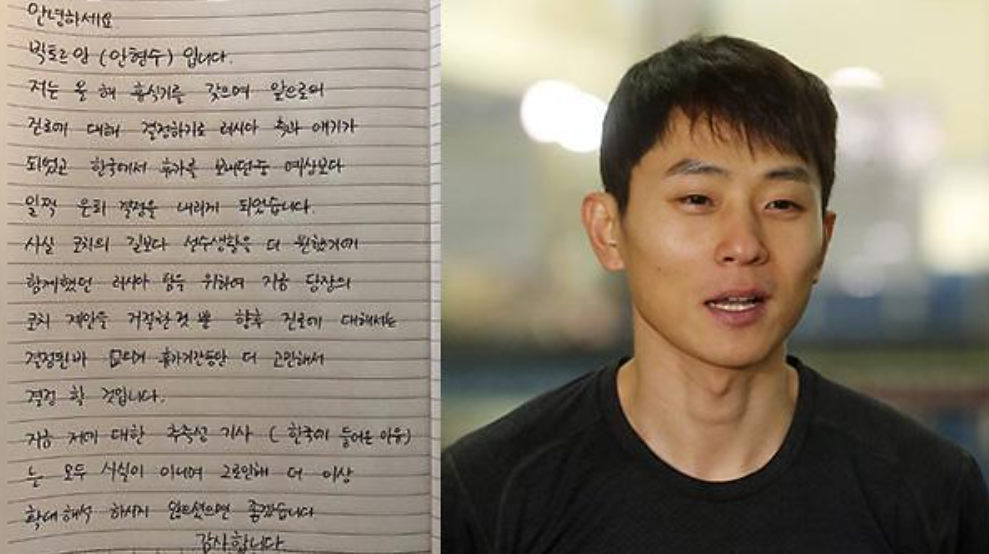 안녕하세요
빅토르안 (안현수) 입니다.
저는 올 해 휴식기를 갖으며 앞으로의
진로에 대해 결정하기로 러시아 측과 얘기가
되었고 한국에서 휴가를 보내던중 예상보다
일찍 은퇴 결정을 내리게 되었습니다.
사실 코치의 길보다 선수생활을 더 원했기에
함께했던 러시아 팀을 위하여 지금 당장의
코치 제안을 거절한것 뿐 향후 진로에 대해서는
결정된바 없으며 휴가기간동안 더 고민해서
결정 할 것입니다.
지금 저에 대한 추측성 기사 ( 한국에 들어온 이유)
는 모두 사실이 아니며 그로인해 더 이상
확대해석 하시지 않으셨으면 좋겠습니다
감사합니다.